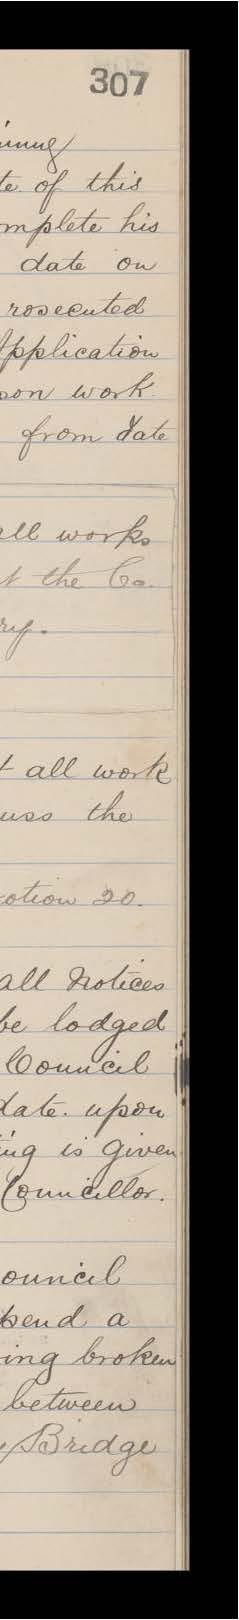 307
ining
te of this
mplete his
date on
rosecuted
Application
son work
from date
all works
t the Co.
ry.
t all work
uss the
otion 20.
all Notices
be lodged
Council
date. upon
ing is given
Councillor.
ouncil
pend a
ing broken
between
y Bridge